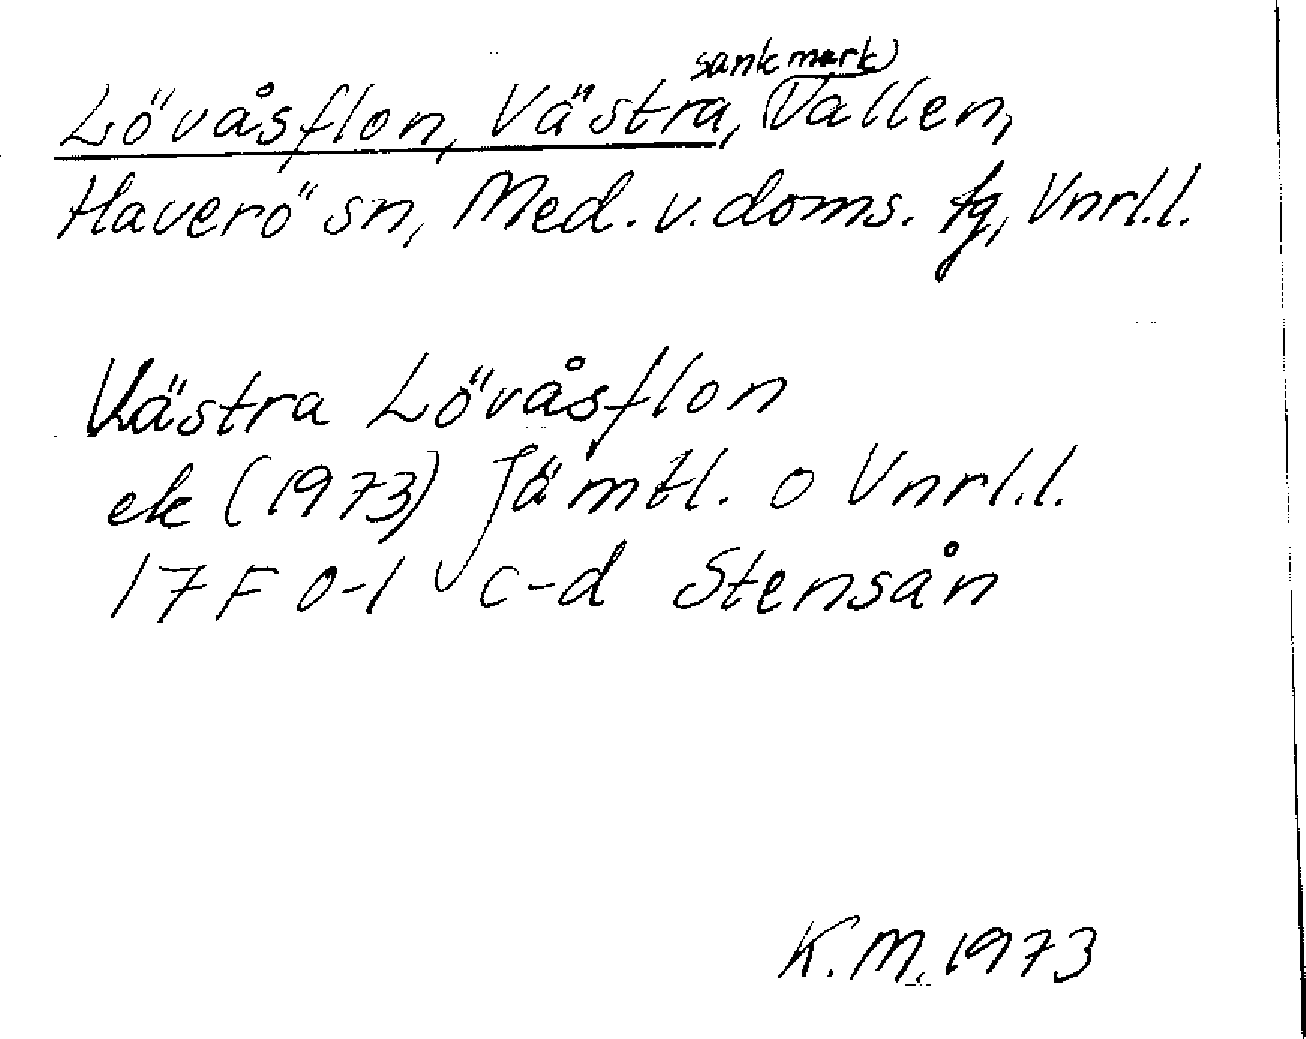 sankmark
Lövåsflon, Västra, Vallen,
Haverö sn, Med. v. doms. fg, Vnrl.l.
Västra Lövåsflon
ek (1973) Jämtl. o Vnrl.l.
17F 0-1 c-d Stensån
K.M. 1973